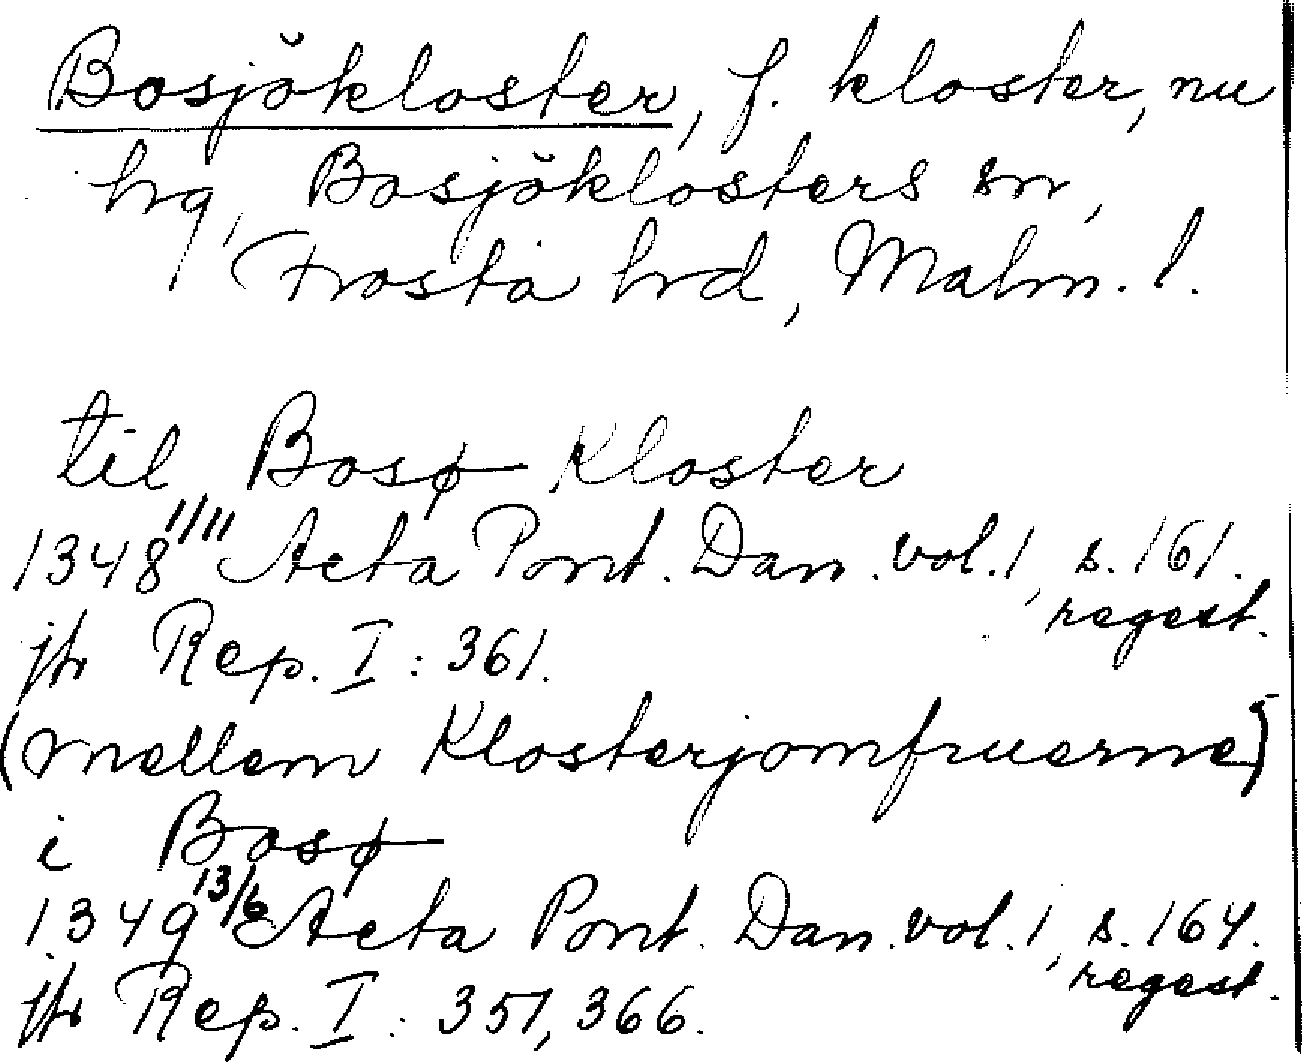 Bosjökloster, f. kloster, nu
hrg, Bosjöklosters sn,
Frosta hrd, Malm. l.
til Bosø Kloster
1348 11/11 Acta Pont. Dan. vol. 1, s. 161.
regest.
jfr Rep. I : 361.
(mellem Klosterjomfruerne)
i Bosø
1349 13/6 Acta Pont. Dan. vol. 1, s. 164.
regest.
jfr Rep. I : 351, 366.